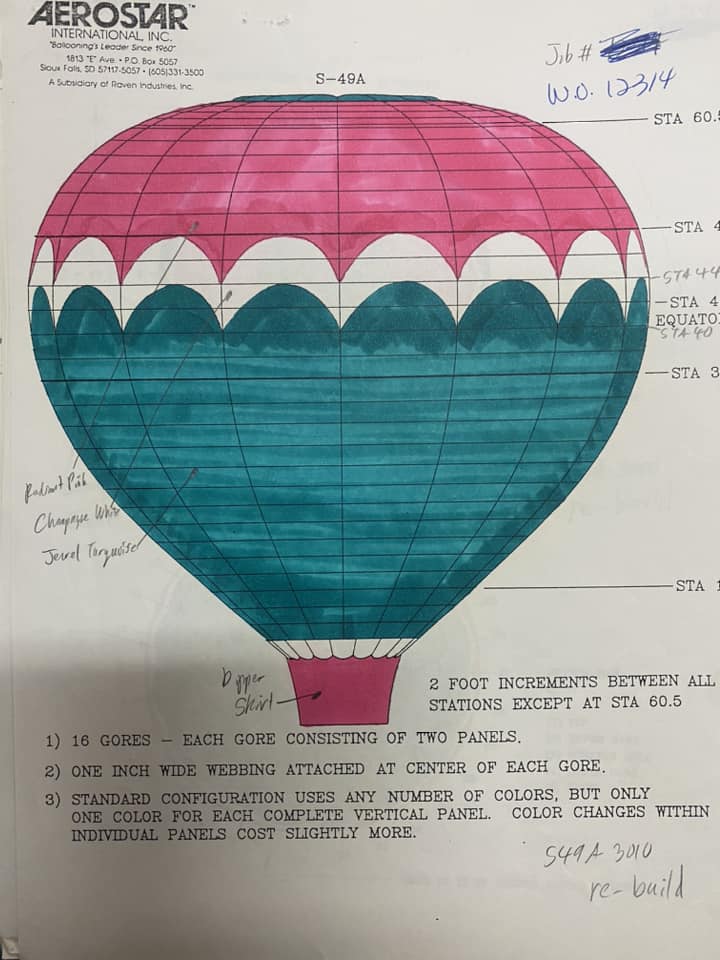 AEROSTAR™
INTERNATIONAL, INC.
"Ballooning's Leader Since 1960"
1813 "E" Ave. • P.O. Box 5057
Sioux Falls, SD 57117-5057 • (605)331-3500
A Subsidiary of Raven Industries, Inc.
Job #
W.O. 12314
S-49A
STA 60.5
STA 4
STA 44
STA 4
EQUATO
STA 40
STA 3
Radiant Pink
Champagne White
Jewel Turquoise
STA 1
Dipper
Skirt
2 FOOT INCREMENTS BETWEEN ALL
STATIONS EXCEPT AT STA 60.5
1) 16 GORES — EACH GORE CONSISTING OF TWO PANELS.
2) ONE INCH WIDE WEBBING ATTACHED AT CENTER OF EACH GORE.
3) STANDARD CONFIGURATION USES ANY NUMBER OF COLORS, BUT ONLY
ONE COLOR FOR EACH COMPLETE VERTICAL PANEL. COLOR CHANGES WITHIN
INDIVIDUAL PANELS COST SLIGHTLY MORE.
S49A 3010
re-build